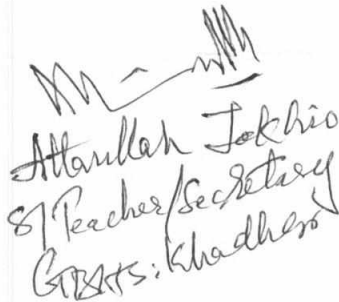 Attaullah Jokhio
S/Teacher/Secretary
GBHS: Khadhero